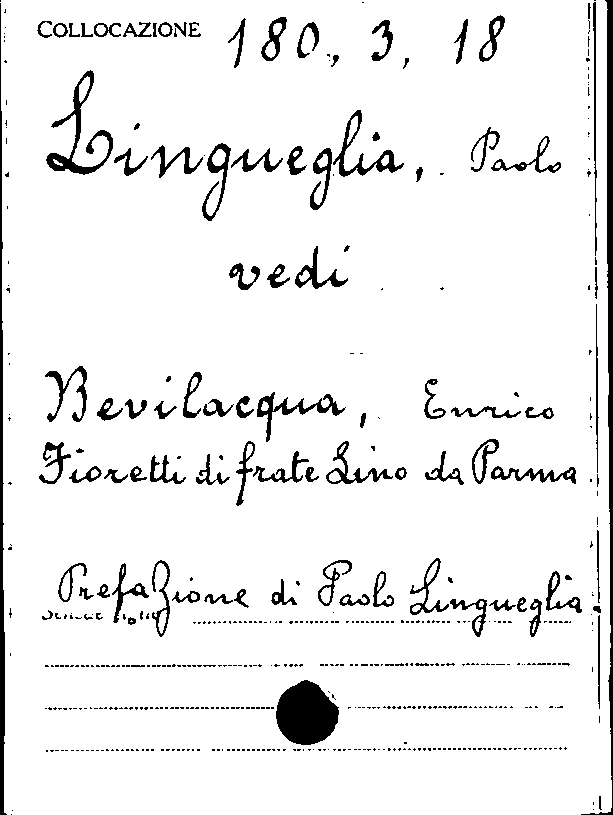 COLLOCAZIONE 180., 3, 18
Lingueglia, Paolo
vedi
Bevilacqua, Enrico
Fioretti di frate Lino da Parma
Prefazione di Paolo Lingueglia.